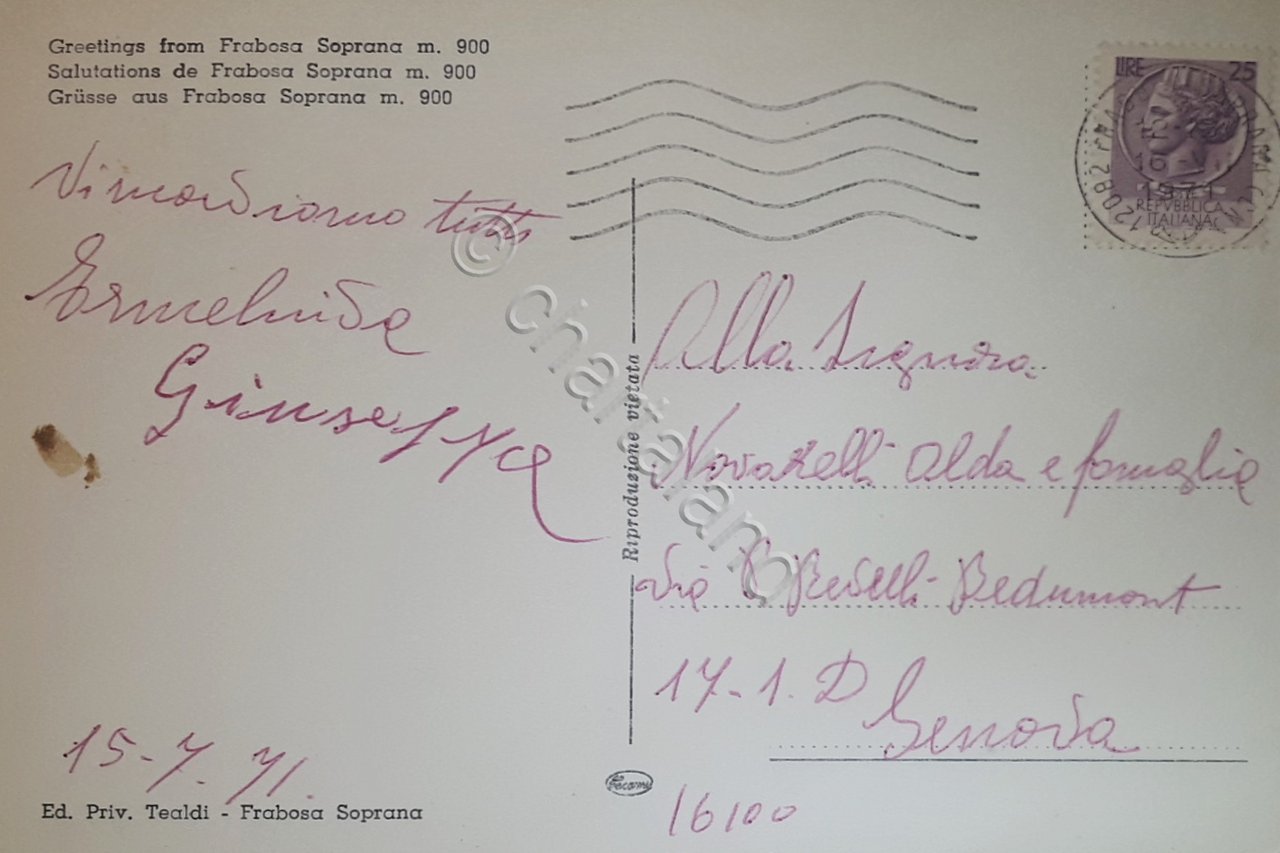 Greetings from Frabosa Soprana m. 900
Salutations de Frabosa Soprana m. 900
Grüsse aus Frabosa Soprana m. 900
Vi ricordiamo tutti
Ermelinda
Giuseppe
15-7.71.
Ed. Priv. Tealdi - Frabosa Soprana
Riproduzione vietata
LIRE 25
REPVBBLICA
ITALIANA
12082 FRABOSA SOPRANA
1971
Alla Signora
Novarelli Alda e famiglia
Via
17-1. D
Genova
16100
© chartaland